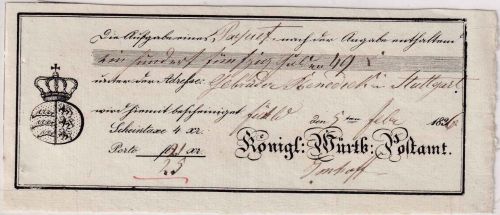 Die Aufgabe eines Paquet nach der Angabe enthaltend
ein hundert fünfzig Guld en 49 x
unter der Adresse: Gebrüder Benedict in Stuttgart
wird hiemit bescheinigt den 5 ten Febr 1836
Scheintaxe 4 xr.
Porto 21 xr
25
Königl: Württb: Postamt.
Imhoff